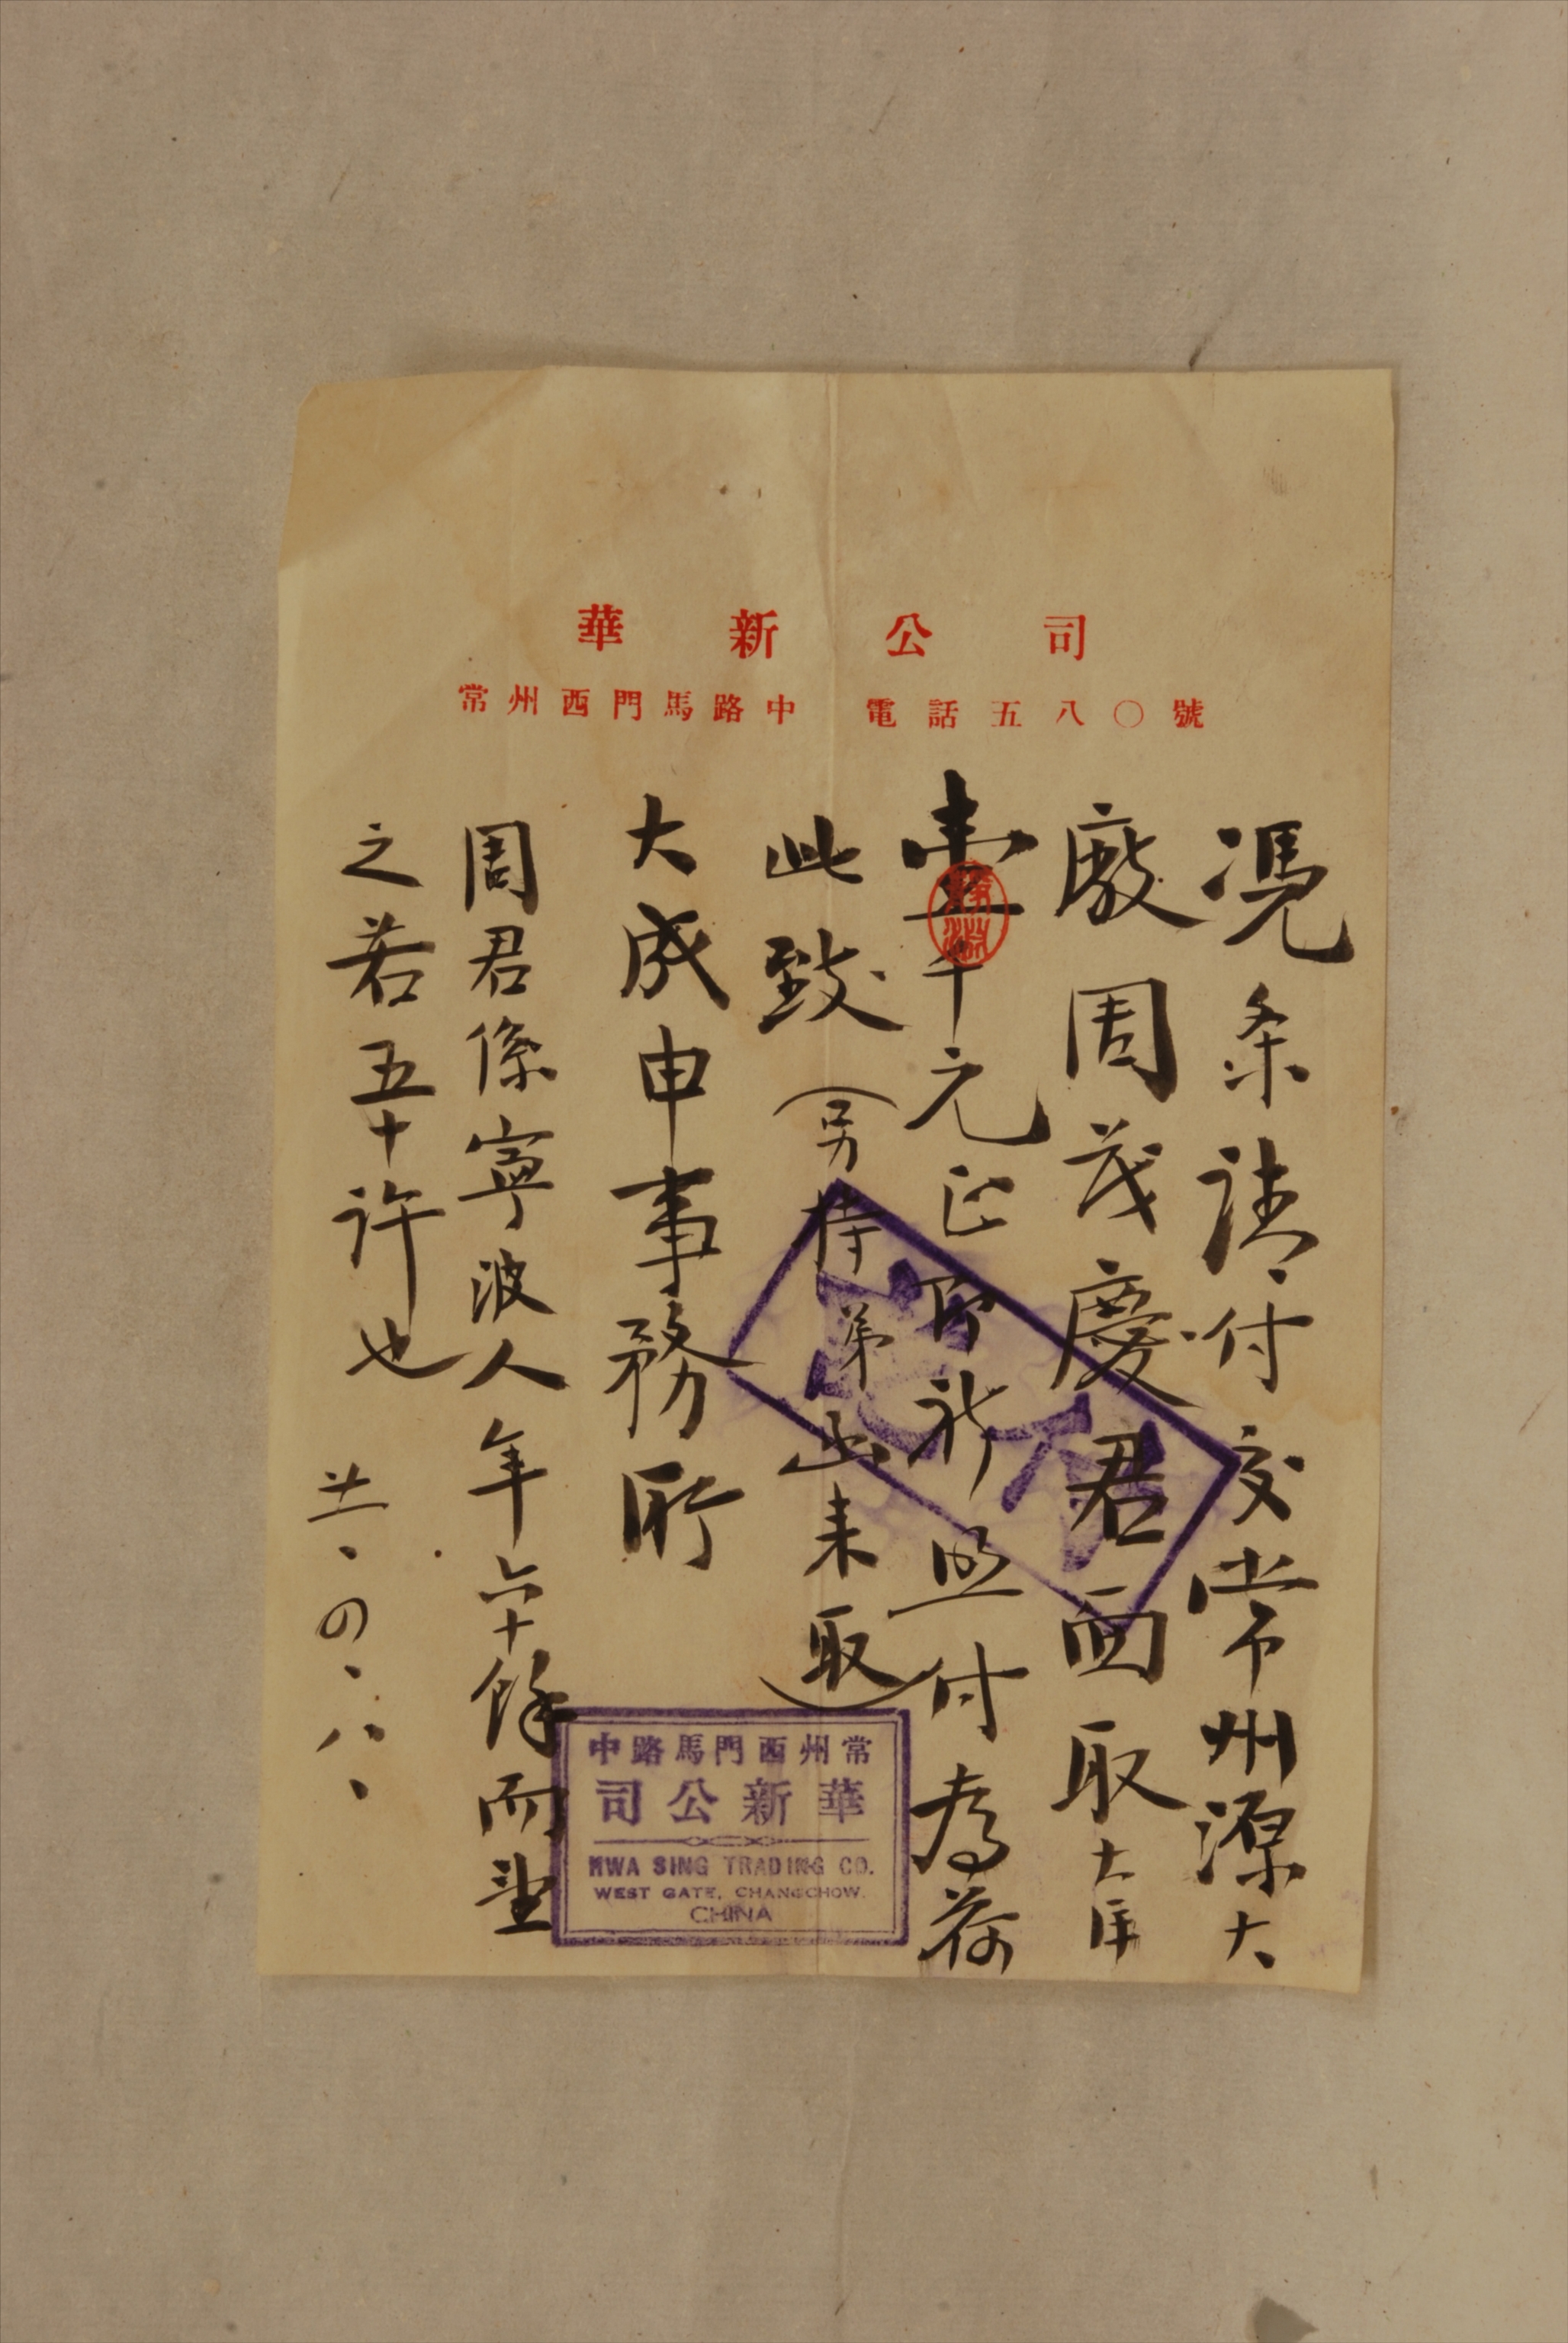 華新公司
常州西門馬路中 電話五八〇號
憑条請付交常州源大
廠周茂慶君面取大庫
壹千元正即祈照付為荷
此致(另持弟函来取)
大成申事務所
周君係寧波人年六十餘而望
之若五十許也 廿一、四、八、
常州西門馬路中
華新公司
HWA SING TRADING CO.
WEST GATE, CHANGCHOW.
CHINA